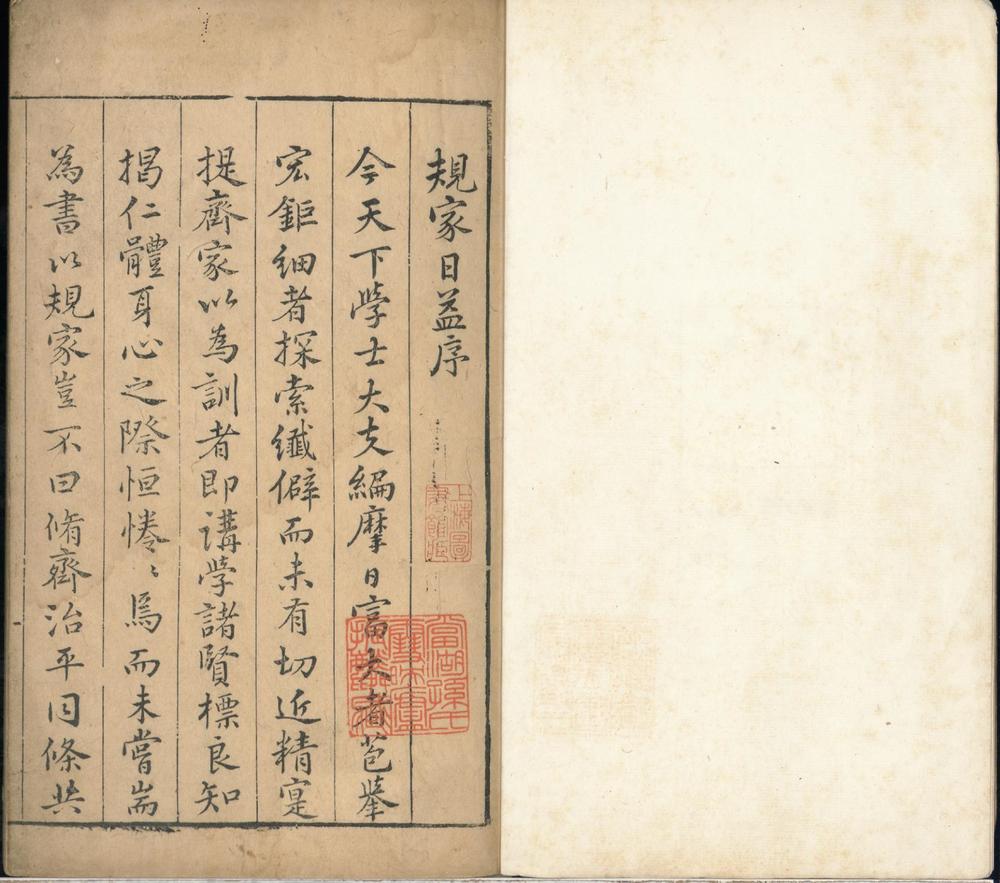 規家日益序
今天下學士大夫編摩日富大者苞犖
宏鉅細者探索纖僻而未有切近精寔
提齊家以為訓者即講學諸賢標良知
揭仁體身心之際恒惓〻焉而未嘗耑
為書以規家豈不曰脩齊治平同條共